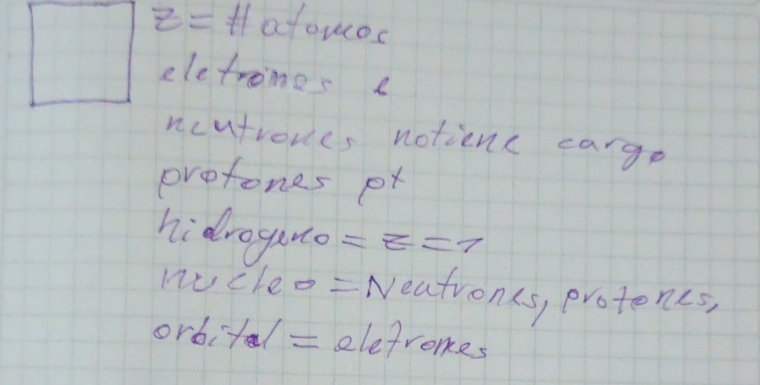 z = # atomos
eletrones e
neutrones notiene carga
protones p+
hidrogeno = z = 1
nucleo = Neutrones, protones,
orbital = eletrones